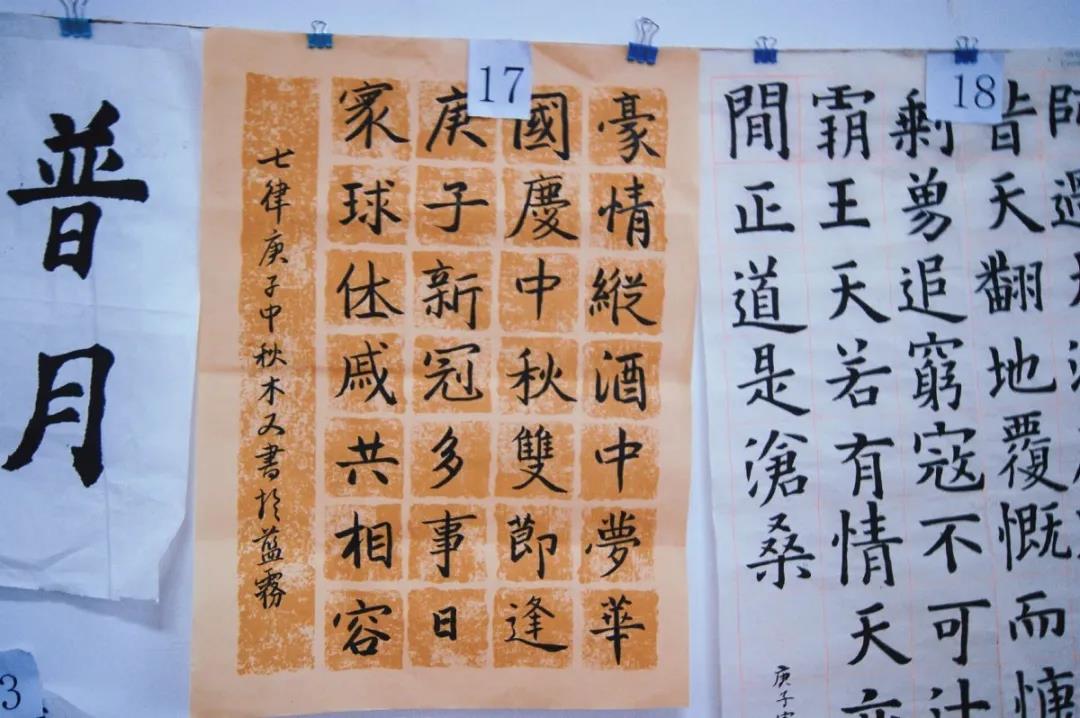 普月
3
17
豪情縱酒中夢華
國慶中秋雙節逢
庚子新冠多事日
寰球休戚共相容
七律庚子中秋木又書於藍霧
18
師過
昔天翻地覆慨而慷
剩勇追窮寇不可
霸王天若有情天亦
閒正道是滄桑
庚子